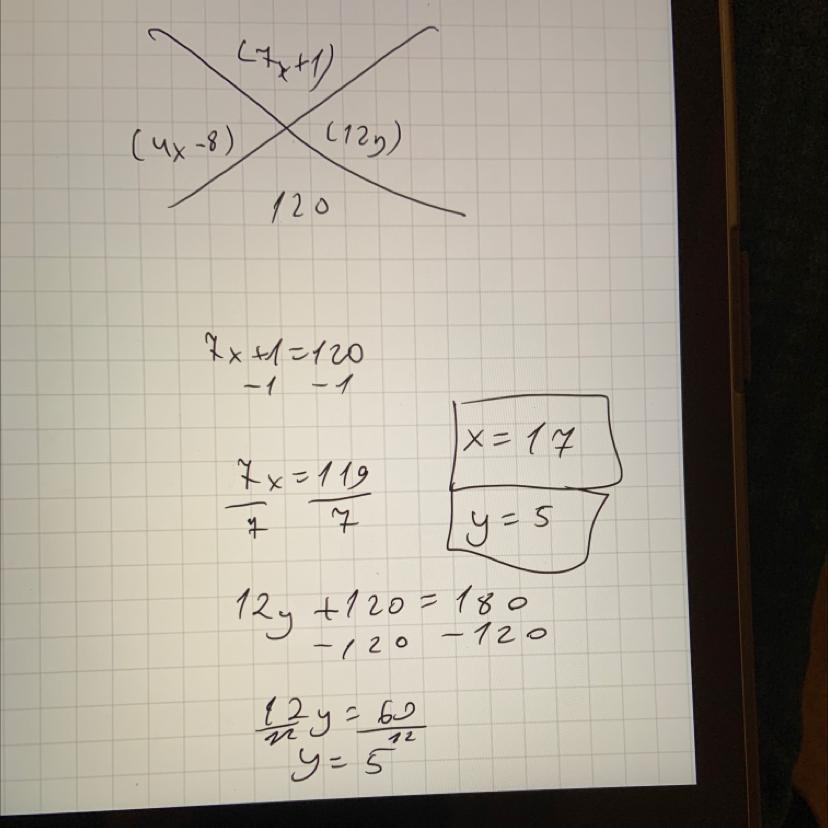 (7x+1)
(4x-8) (12y)
120
7x+1=120
-1 -1
x=17
7x=119
7 7
y=5
12y+120=180
-120 -120
12y=60
12 12
y=5